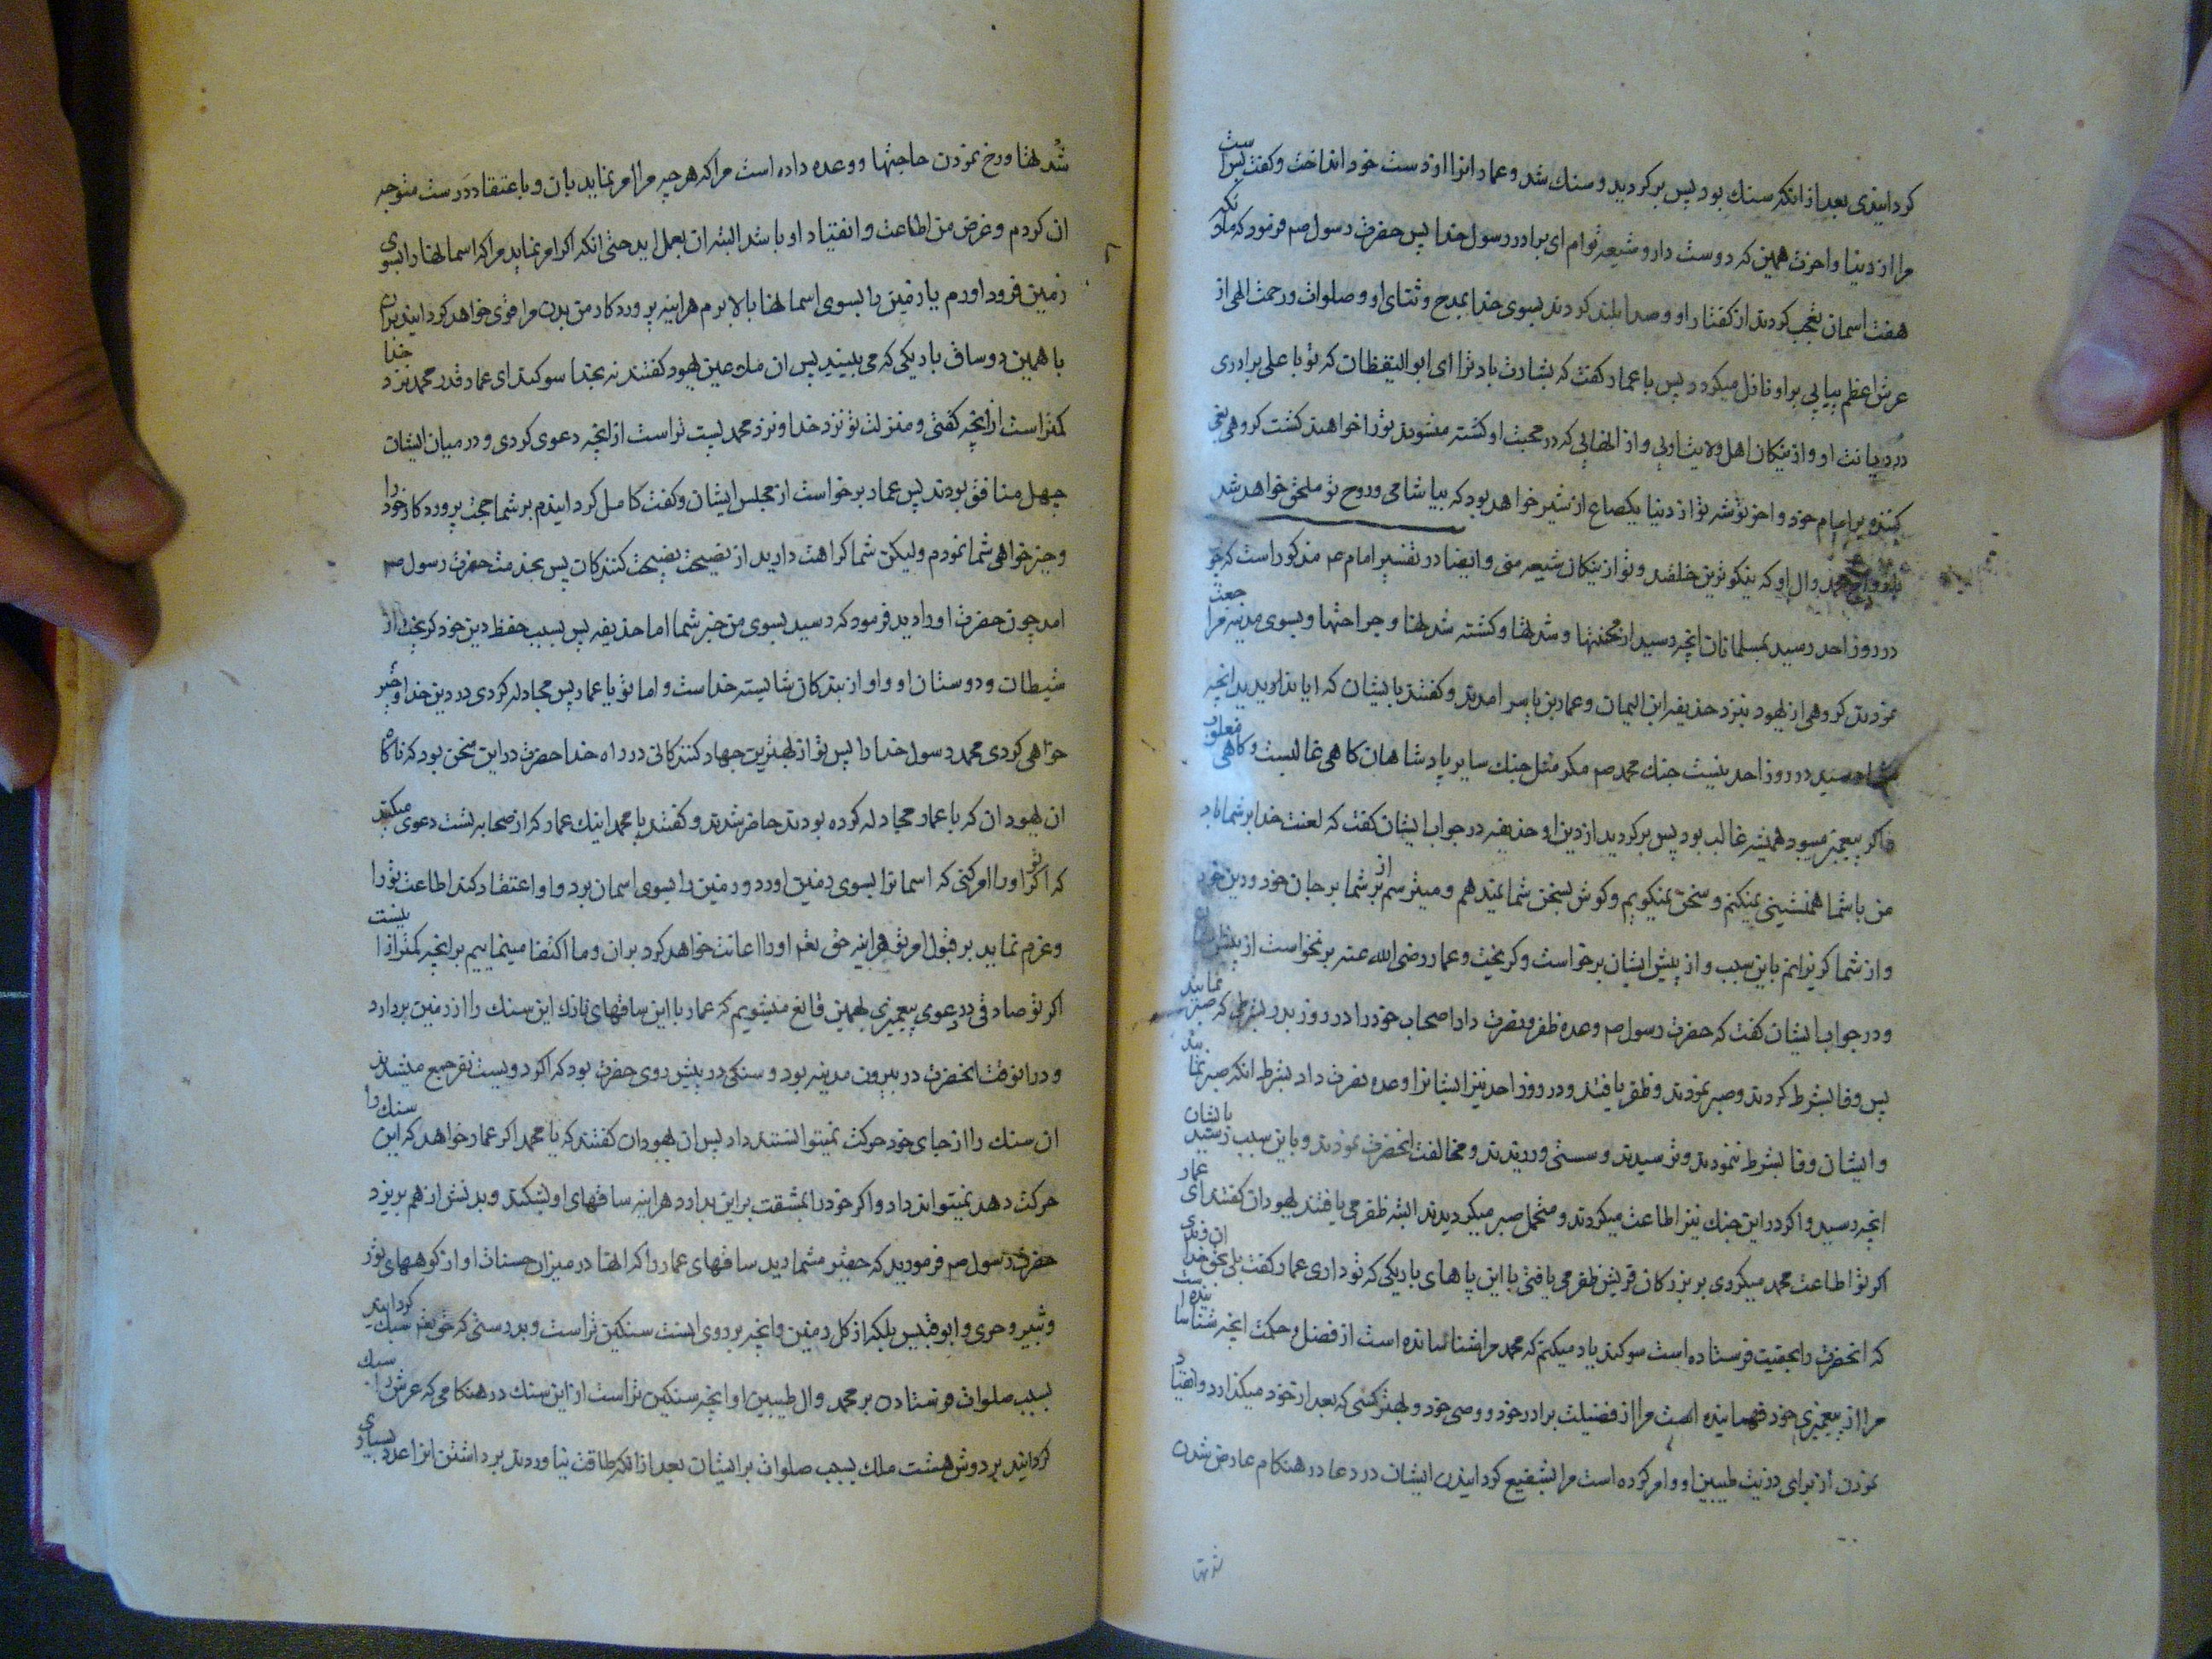 کردانیدی بعد از انکه سنك بود پس برکردید و سنك شد و عمار انرا از دست خود انداخت و کفت بس است
مرا از دنیا و اخرت همین که دوست دار و شیعه توام ای برادر رسول خدا پس حضرت رسول صم فرمود که ملائکه
هفت اسمان تعجب کردند از کفتار او و صدا بلند کردند بسوی خدا بمدح و ثنای او و صلوات و رحمت الهی از
عرش اعظم پیاپی بر او نازل میکردد پس با عمار کفت که بشارت باد ترا ای ابو الیقظان که تو با علی برادری
در دیانت او و از نیکان اهل ولایت اویی و از انهایی که در محبت او کشته میشوند ترا خواهند کشت کروهی بغی
کننده بر امام خود و اخر توشه تو از دنیا یکصاع از شیر خواهد بود که بیاشامی و روح تو ملحق خواهد شد
بارواح محمد و ال او که نیکوترین خلقند و تو از نیکان شیعه منی و ایضا در تفسیر امام عم مذکور است که چو
در روز احد رسید بمسلمانان انچه رسید از محنتها و شدتها و کشته شدنها و جراحتها و بسوی مدینه مراجعت
نمودند کروهی از یهود بنزد حذیفه ابن الیمان و عمار بن یاسر امدند و کفتند بایشان که ایا ندیدید انچه
بشما رسید در روز احد نیست جنك محمد صم مکر مثل جنك سایر پادشاهان کاهی غالبست و کاهی مغلوب
و اکر پیغمبر میبود همیشه غالب بود پس برکردید از دین او حذیفه در جواب ایشان کفت که لعنت خدا بر شما باد
من با شما همنشینی نمیکنم و سخن نمیکویم و کوش بسخن شما نمیدهم و میترسم از شر شما بر جان خود و دین خود
و از شما کریزانم باین سبب و از پیش ایشان برخواست و کریخت و عمار رضی الله عنه برنخواست از پیش
و در جواب ایشان کفت که حضرت رسول صم وعده ظفر و نصرت داد اصحاب خود را در روز بدر بشرطی که صبر نمایند
پس وفا بشرط کردند و صبر نمودند و ظفر یافتند و در روز احد نیز ایشانرا وعده نصرت داد بشرط انکه صبر نمایند
و ایشان وفا بشرط ننمودند و ترسیدند و سستی ورزیدند و مخالفت انحضرت نمودند و باین سبب رسید بایشان
انچه رسید و اکر در این جنك نیز اطاعت میکردند و متحمل صبر میکردیدند البته ظفر می یافتند یهودان کفتند ای عمار
اکر تو اطاعت محمد میکردی بر بزرکان قریش ظفر می یافتی با این پاهای باریکی که تو داری عمار کفت بلی بحق خداوندی
که انحضرت را بحقیت فرستاده است سوکند یاد میکنم که محمد مرا شناسانده است از فضل و حکمت انچه شناسانیده است
مرا از پیغمبری خود و فهمانیده است مرا از فضیلت برادر خود و وصی خود و بهتر کسی که بعد از خود میکذارد و انقیاد
نمودن از برای ذریت طیبین او و امر کرده است مرا بشفیع کردانیدن ایشان در دعا در هنکام عارض شدن
شدتها
شدتها و رخ نمودن حاجتها و وعده داده است مرا که هر چه مرا امر نماید بان و باعتقاد درست متوجه
ان کردم و غرض من اطاعت و انقیاد او باشد البته ان بعمل اید حتی انکه اکر امر نماید مرا که اسمانها را بسوی
زمین فرود اورم یا زمین را بسوی اسمانها بالا برم هراینه پروردکار من بدن مرا قوی خواهد کردانید بران
با همین دو ساق باریکی که می بینید پس ان ملاعین یهود کفتند نه بخدا سوکند ای عمار قدر محمد نزد خدا
کمتر است از انچه کفتی و منزلت تو نزد خدا و نزد محمد پست تر است از انچه دعوی کردی و در میان ایشان
چهل منافق بودند پس عمار برخواست از مجلس ایشان و کفت کامل کردانیدم بر شما حجت پروردکار خود را
و خیر خواهی شما نمودم ولیکن شما کراهت دارید از نصیحت نصیحت کنندکان پس بخدمت حضرت رسول صم
امد چون حضرت او را دید فرمود که رسید بسوی من خبر شما اما حذیفه پس بسبب حفظ دین خود کریخت از
شیطان و دوستان او و او از بندکان شایسته خداست و اما تو یا عمار پس مجادله کردی در دین خدا و خیر
خواهی کردی محمد رسول خدا را پس تو از بهترین جهاد کنندکانی در راه خدا حضرت در این سخن بود که ناکاه
ان یهودان که با عمار مجادله کرده بودند حاضر شدند و کفتند یا محمد اینك عمار که از صحابه تست دعوی میکند
که اکر تو او را امر کنی که اسمانرا بسوی زمین اورد و زمین را بسوی اسمان برد و او اعتقاد کند اطاعت تو را
و عزم نماید بر قبول امر تو هراینه حق تعم او را اعانت خواهد کرد بران و ما اکتفا مینماییم بر انچه کمتر از انیست
اکر تو صادقی در دعوی پیغمبری بهمین قانع میشویم که عمار با این ساقهای نازك این سنك را از زمین بردارد
و در انوقت انحضرت در بیرون مدینه بود و سنکی در پیش روی حضرت بود که اکر دویست نفر جمع میشدند
ان سنك را از جای خود حرکت نمیتوانستند داد پس ان یهودان کفتند که یا محمد اکر عمار خواهد که این سنك را
حرکت دهد نمیتواند داد و اکر خود را بمشقت براین بدارد هراینه ساقهای او بشکند و بدنش از هم بریزد
حضرت رسول صم فرمودند که حقیر مشمارید ساقهای عمار را که انها در میزان حسنات او از کوههای ثور
و ثبیر و حری و ابو قبیس بلکه از کل زمین و انچه بر روی انست سنکین تر است و بدرستی که حق تعم سبك کردانید
بسبب صلوات فرستادن بر محمد و ال طیبین او انچه سنکین تر است از این سنك در هنکامی که عرش را سبك
کردانید بر دوش هشت ملك بسبب صلوات بر ایشان بعد از انکه طاقت نیاوردند برداشتن انرا عدد بسیاری